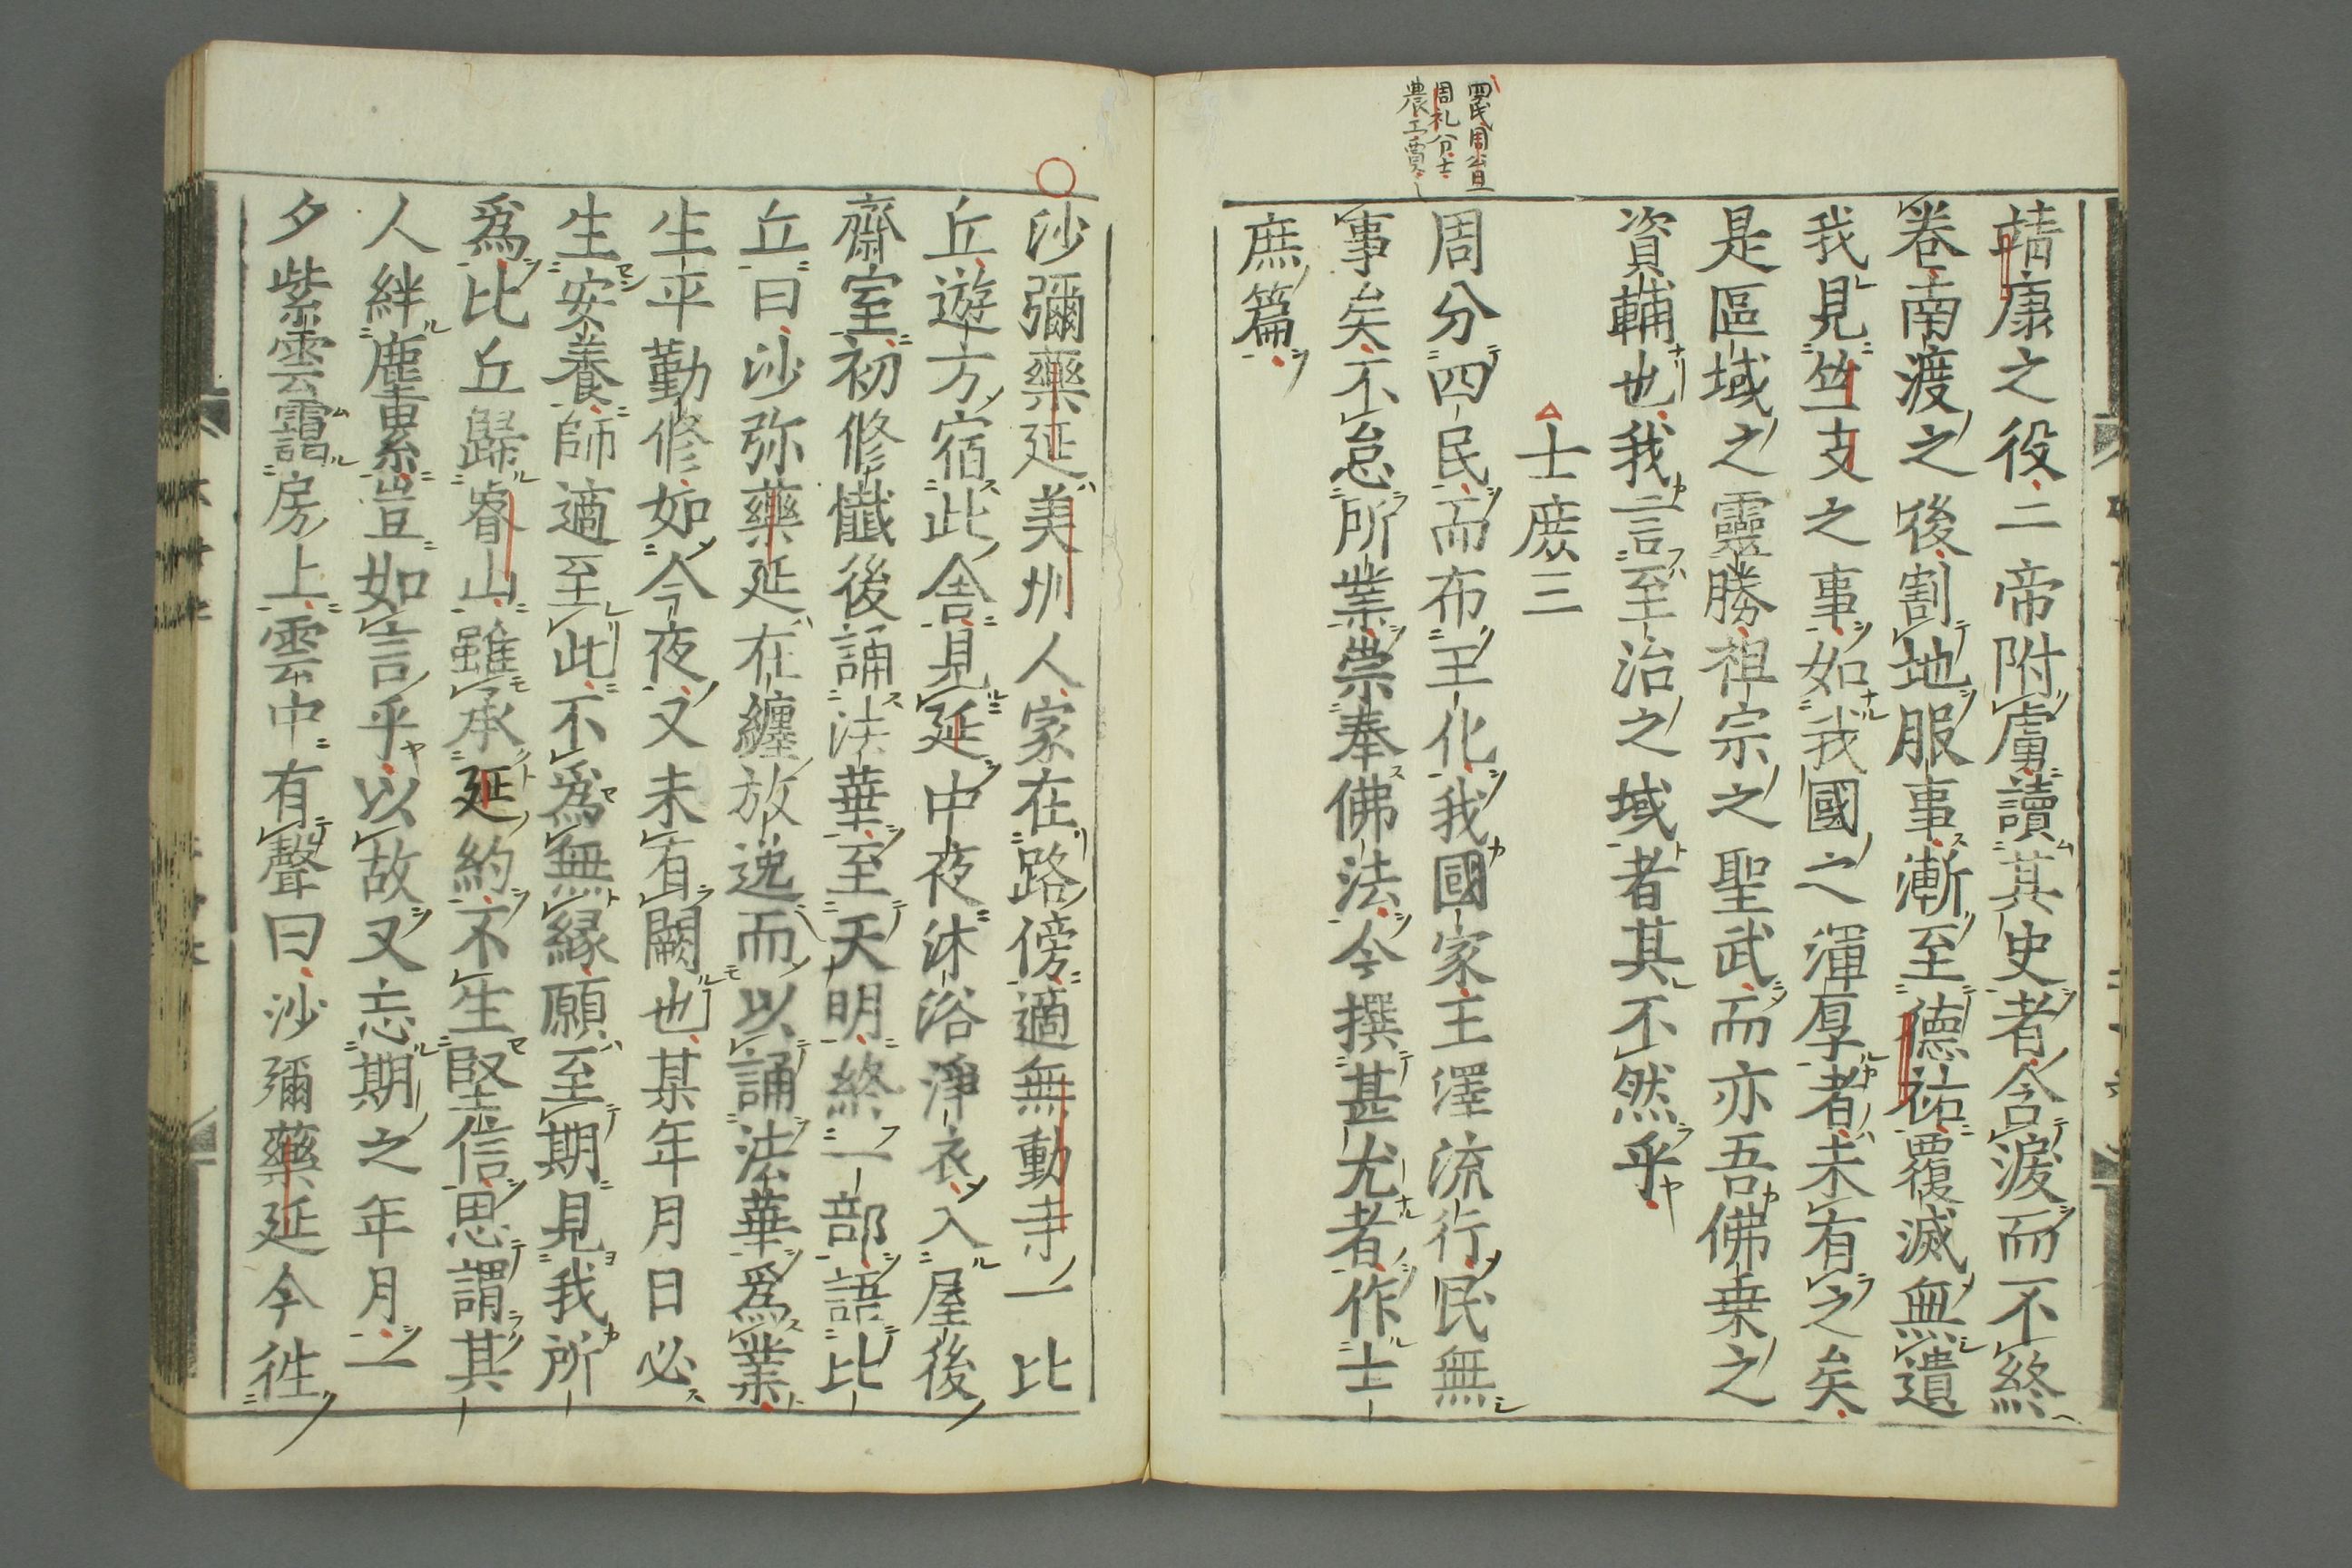 靖康之役二帝附虜讀其史者含淚而不終
卷南渡之後割地服事漸至德祐覆滅無遺
我見竺支之事如我國之渾厚者未有之矣
是區域之靈勝祖宗之聖武而亦吾佛乗之
資輔也我言至治之域者其不然乎
士庶三
周分四民而布王化我國家王澤流行民無
事矣不怠所業崇奉佛法今撰甚尤者作士
庶篇
周礼分士
農工賈
沙彌藥延美州人家在路傍適無動寺一比
丘遊方宿此舍見延中夜沐浴淨衣入屋後
齋室初修懺後誦法華至天明終一部語比
丘曰沙弥藥延在纏放逸而以誦法華爲業
生平勤修如今夜又未有闕也某年月日必
生安養師適至此不爲無縁願至期見我所
爲比丘歸睿山雖承延約不生堅信思謂其
人絆塵累豈如言乎以故又忘期之年月一
夕紫雲靄房上雲中有聲曰沙彌藥延今徃